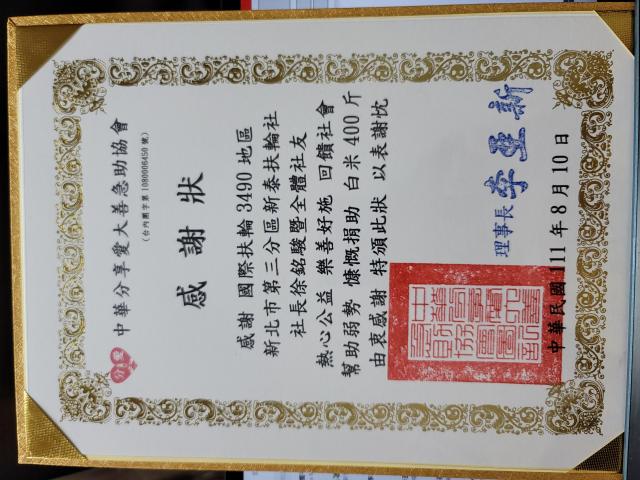 中華分享愛大善急助協會
(台內團字第1080006450號)
感謝狀
感謝 國際扶輪3490地區
新北市第三分區新泰扶輪社
社長徐銘駿暨全體社友
熱心公益 樂善好施 回饋社會
幫助弱勢 慷慨捐助 白米400斤
由衷感謝 特頒此狀 以表謝忱
理事長
中華民國111年8月10日